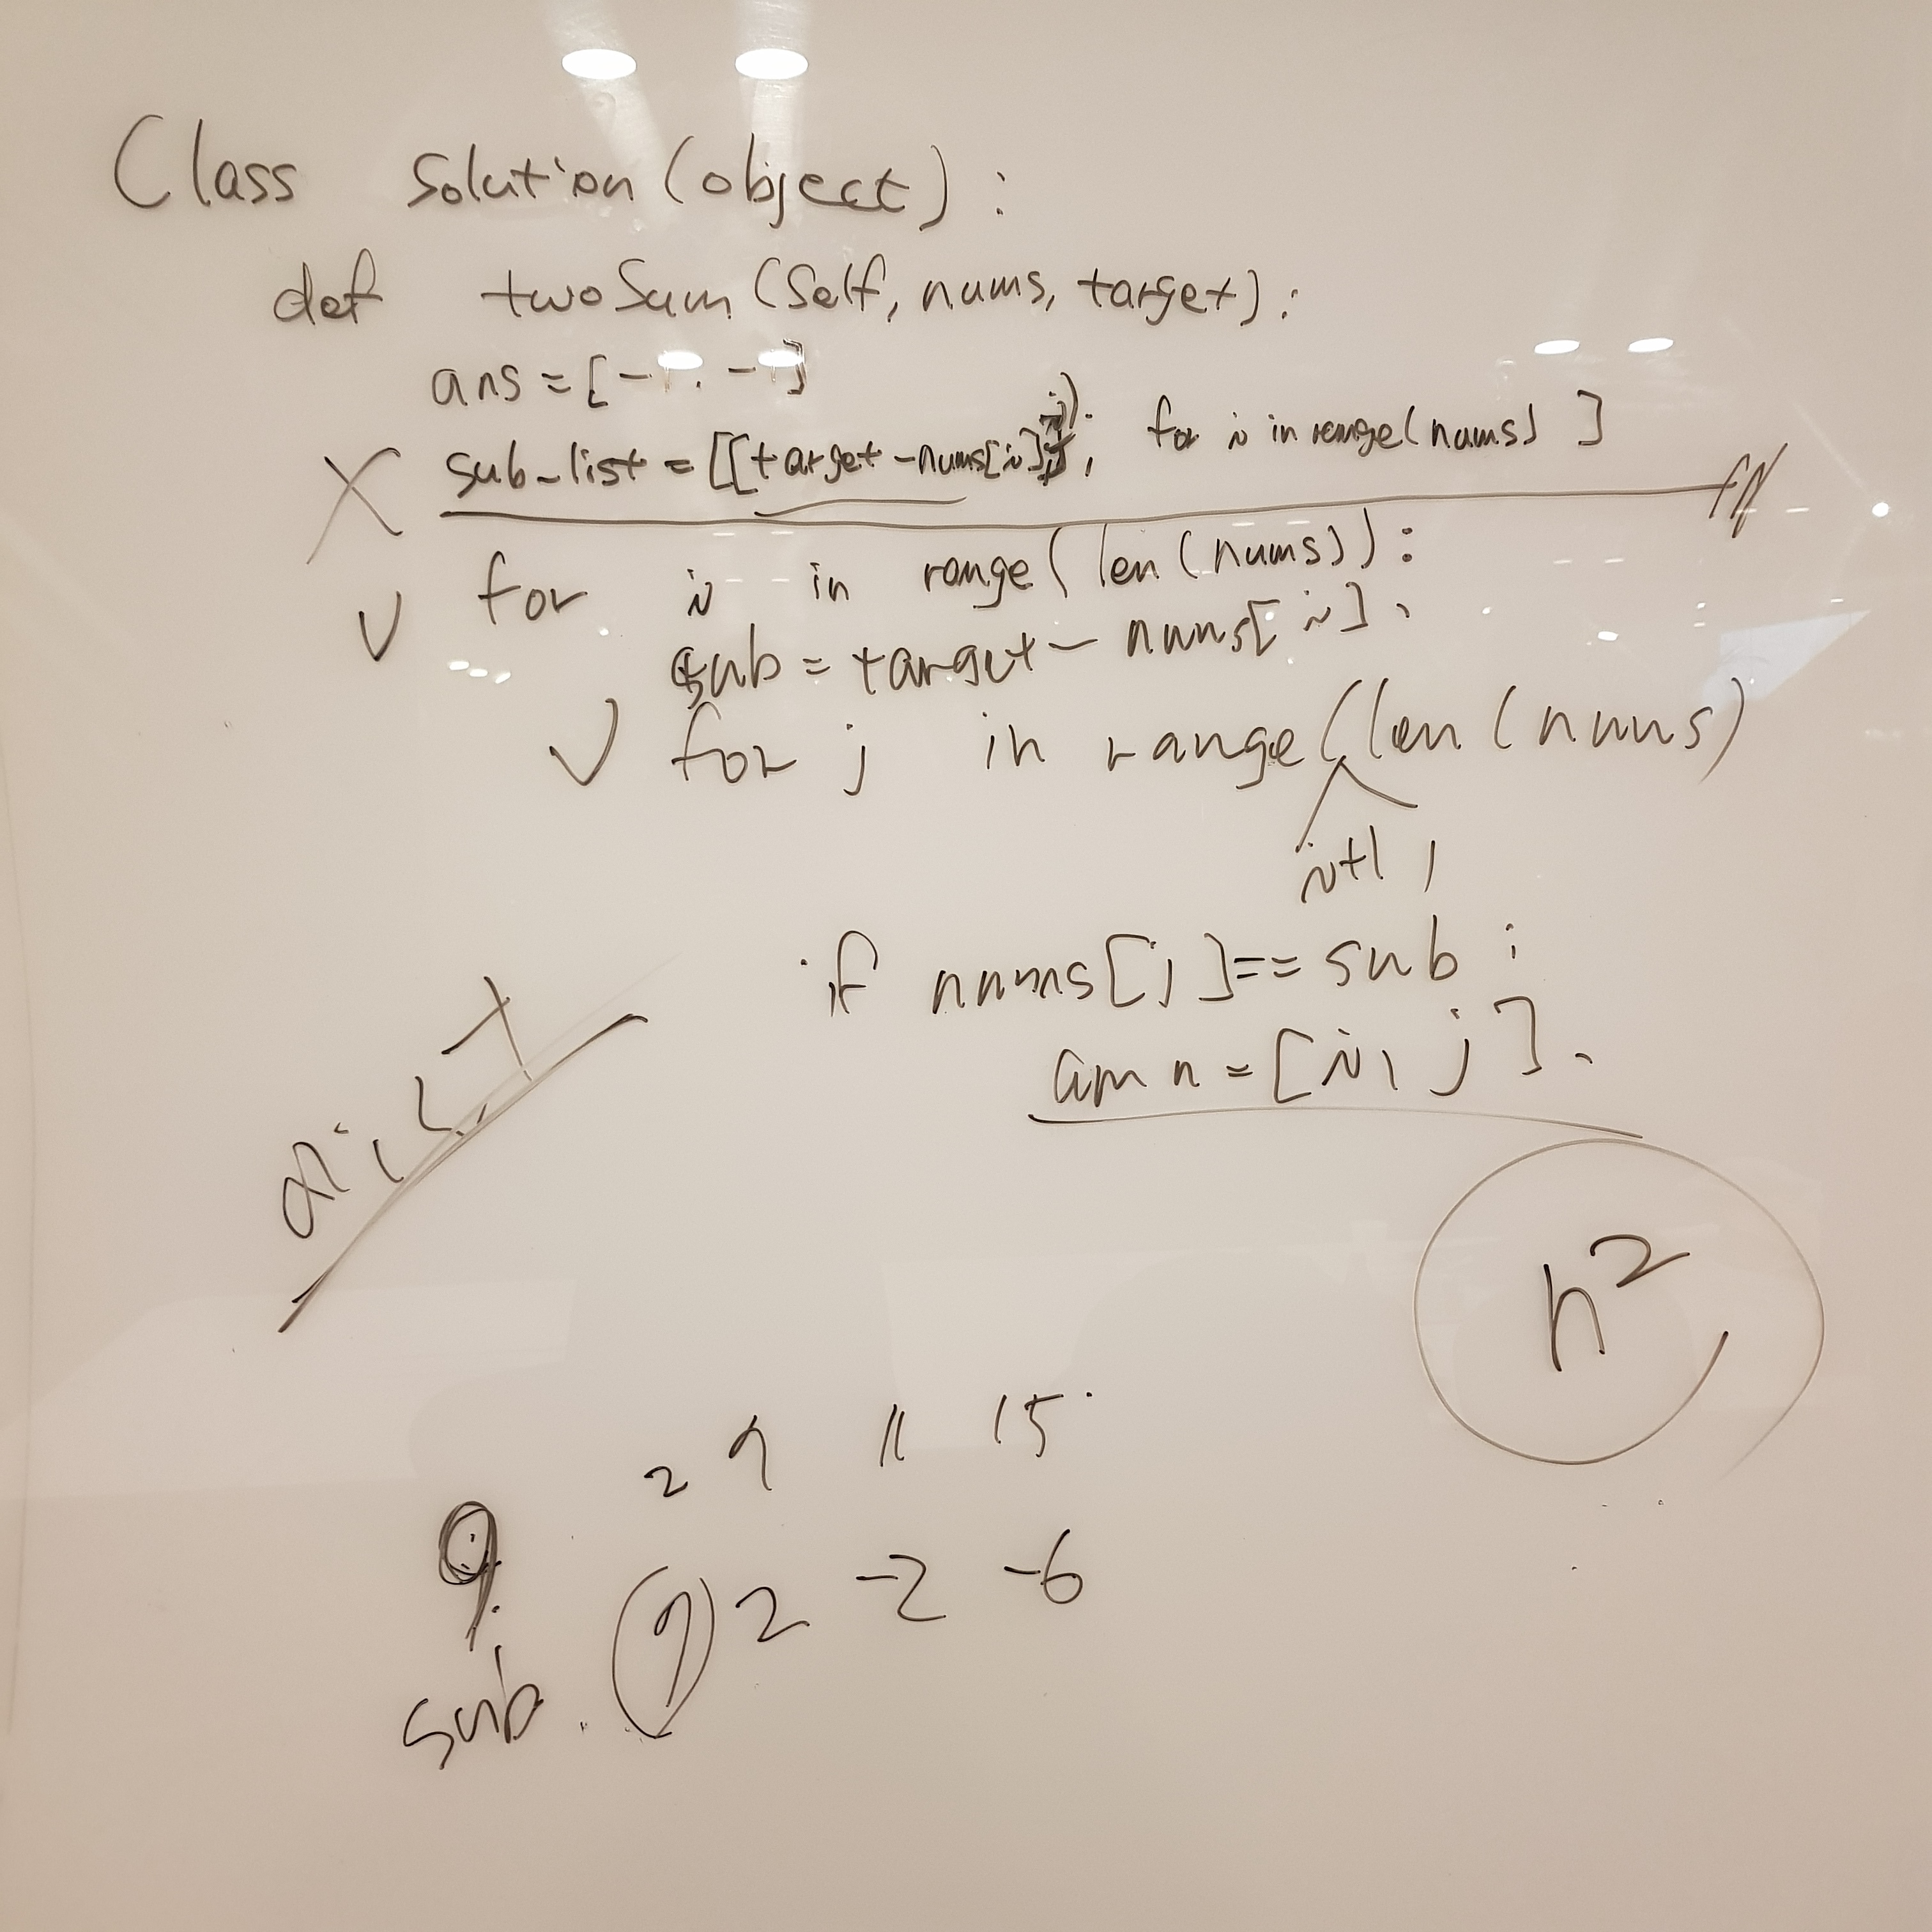 Class Solution(object):
def twoSum(Self, nums, target):
ans = [- . . -]
sub_list = [[target - nums[i] for i in range(nums) ]
for i in range(len(nums)):
sub = target - nums[i].
for j in range(len(nums)
i+1,
if nums[j] == sub :
= [i, j].
dict
n²
2 7 11 15
9
sub. (7) 2 -2 -6